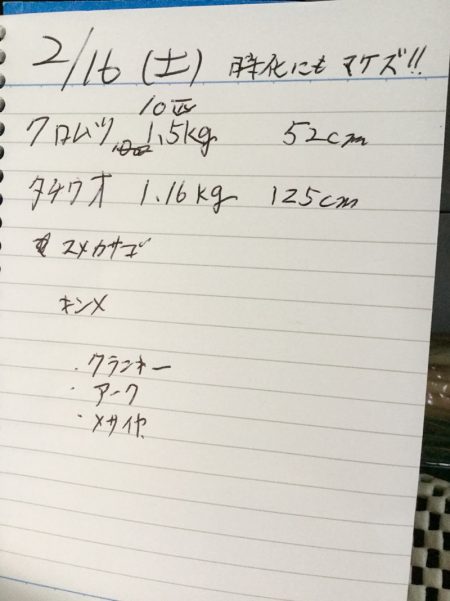 2/16 (土) 時化にもマケズ!!
10匹
クロムツ 1.5kg 52cm
タチウオ 1.16kg 125cm
ユメカサゴ
キンメ
・クランキー
・アーク
・メサイヤ